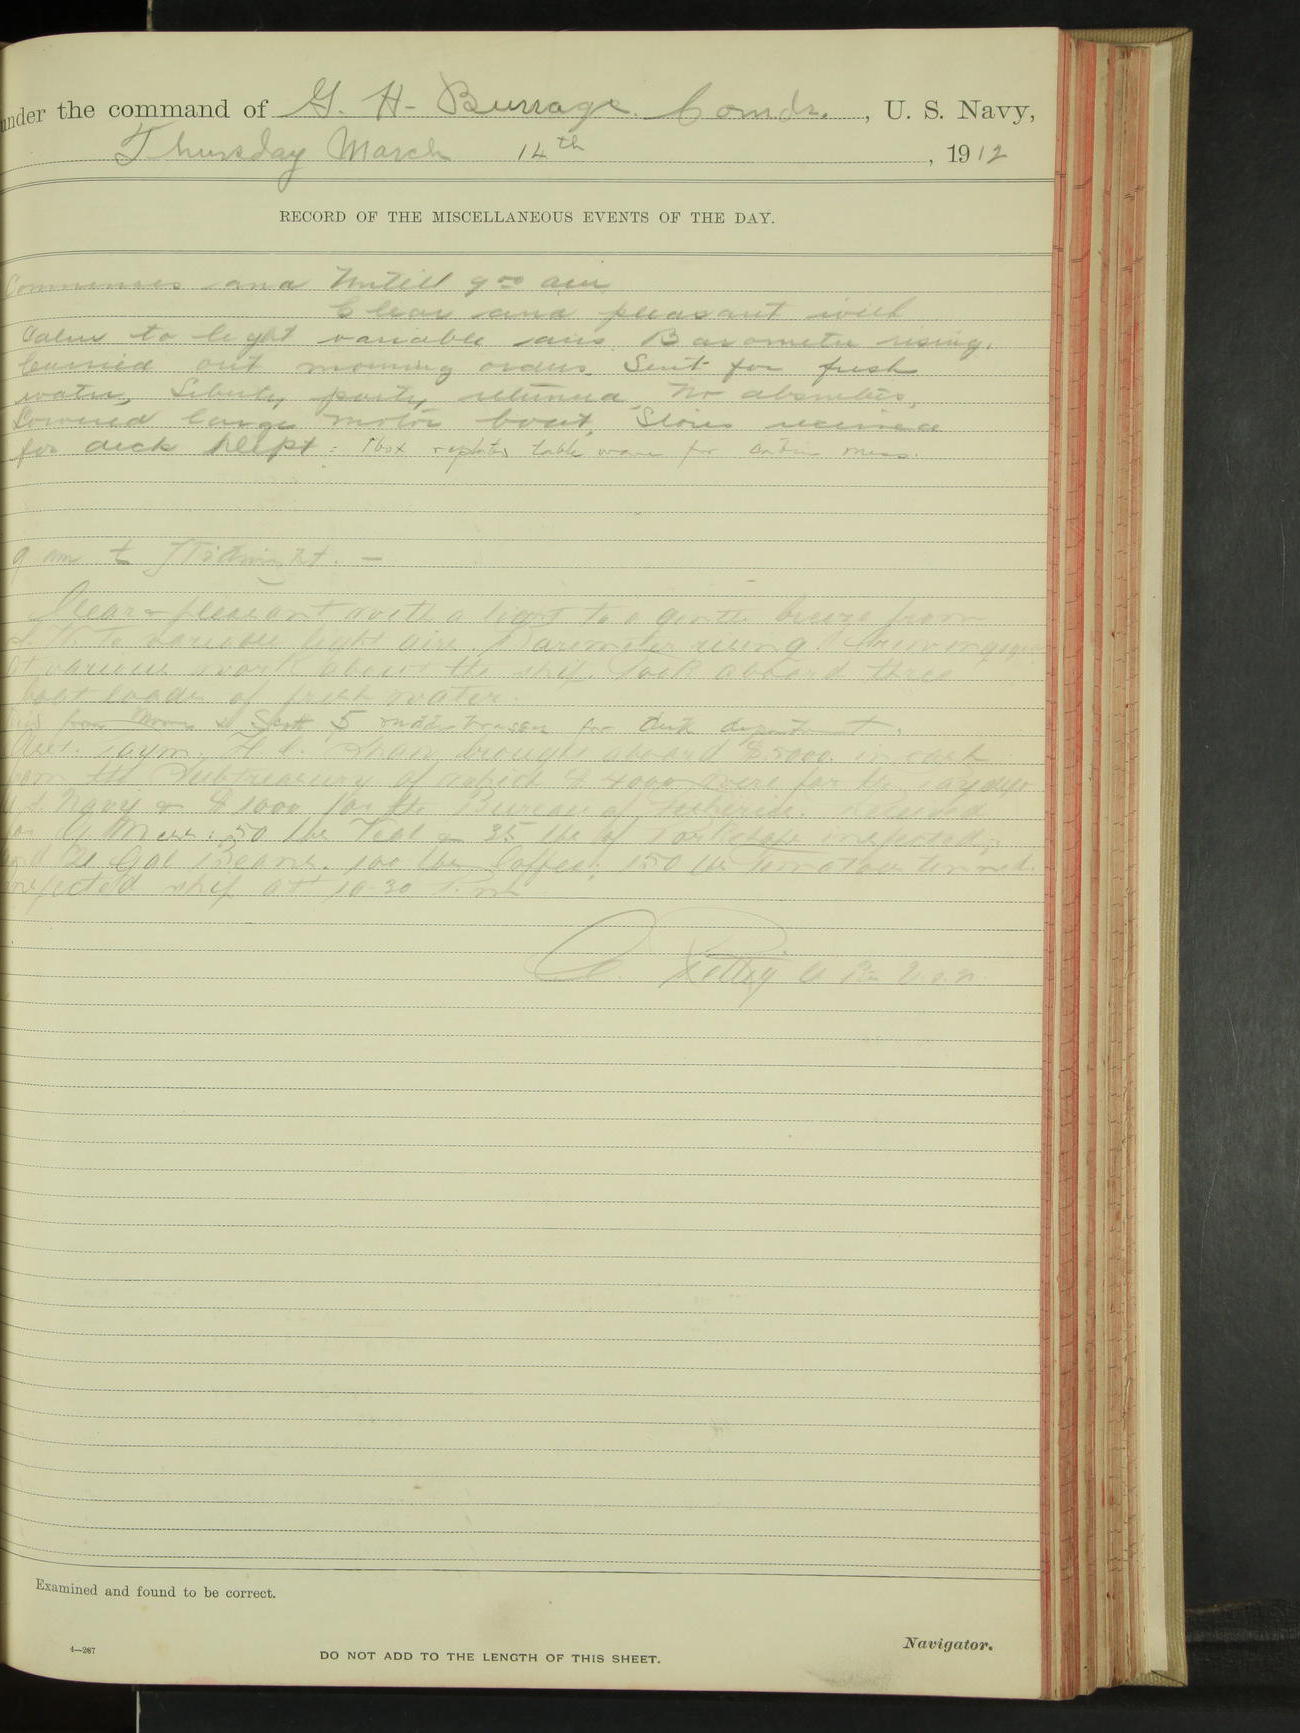 under the command of G. H. Burrage. Comdr., U. S. Navy,
Thursday March 14th, 1912
RECORD OF THE MISCELLANEOUS EVENTS OF THE DAY.
Commences and Untill 9 00 am
Clear and pleasant with
Calm to light variable airs. Barometer rising.
Carried out morning orders. Sent for fresh
water, Liberty party returned. No absentees.
Lowered large motor boat. Stores received
for deck Dept: 1 box table ware for cabin mess.
9 am to Midnight. —
Clear & pleasant with a light to a gentle breeze from
to various light airs. Barometer rising. Crew engaged
at various work about the ship. Took aboard three
boat loads of fresh water.
from & Scott 5 for deck department.
Asst. Paym. brought aboard $5000. in cash
from the Subtreasury of which $4000 were for the Pay dept
U.S. Navy & $1000 for the Bureau of Fisheries. Received
for Mess: 50 lbs Veal & 35 lbs of inspected;
and Gal Beans. 100 lbs Coffee; 150 lbs tomatoes tinned.
inspected ship at 10-30
U.S.N.
Examined and found to be correct.
Navigator.
4—267
DO NOT ADD TO THE LENGTH OF THIS SHEET.